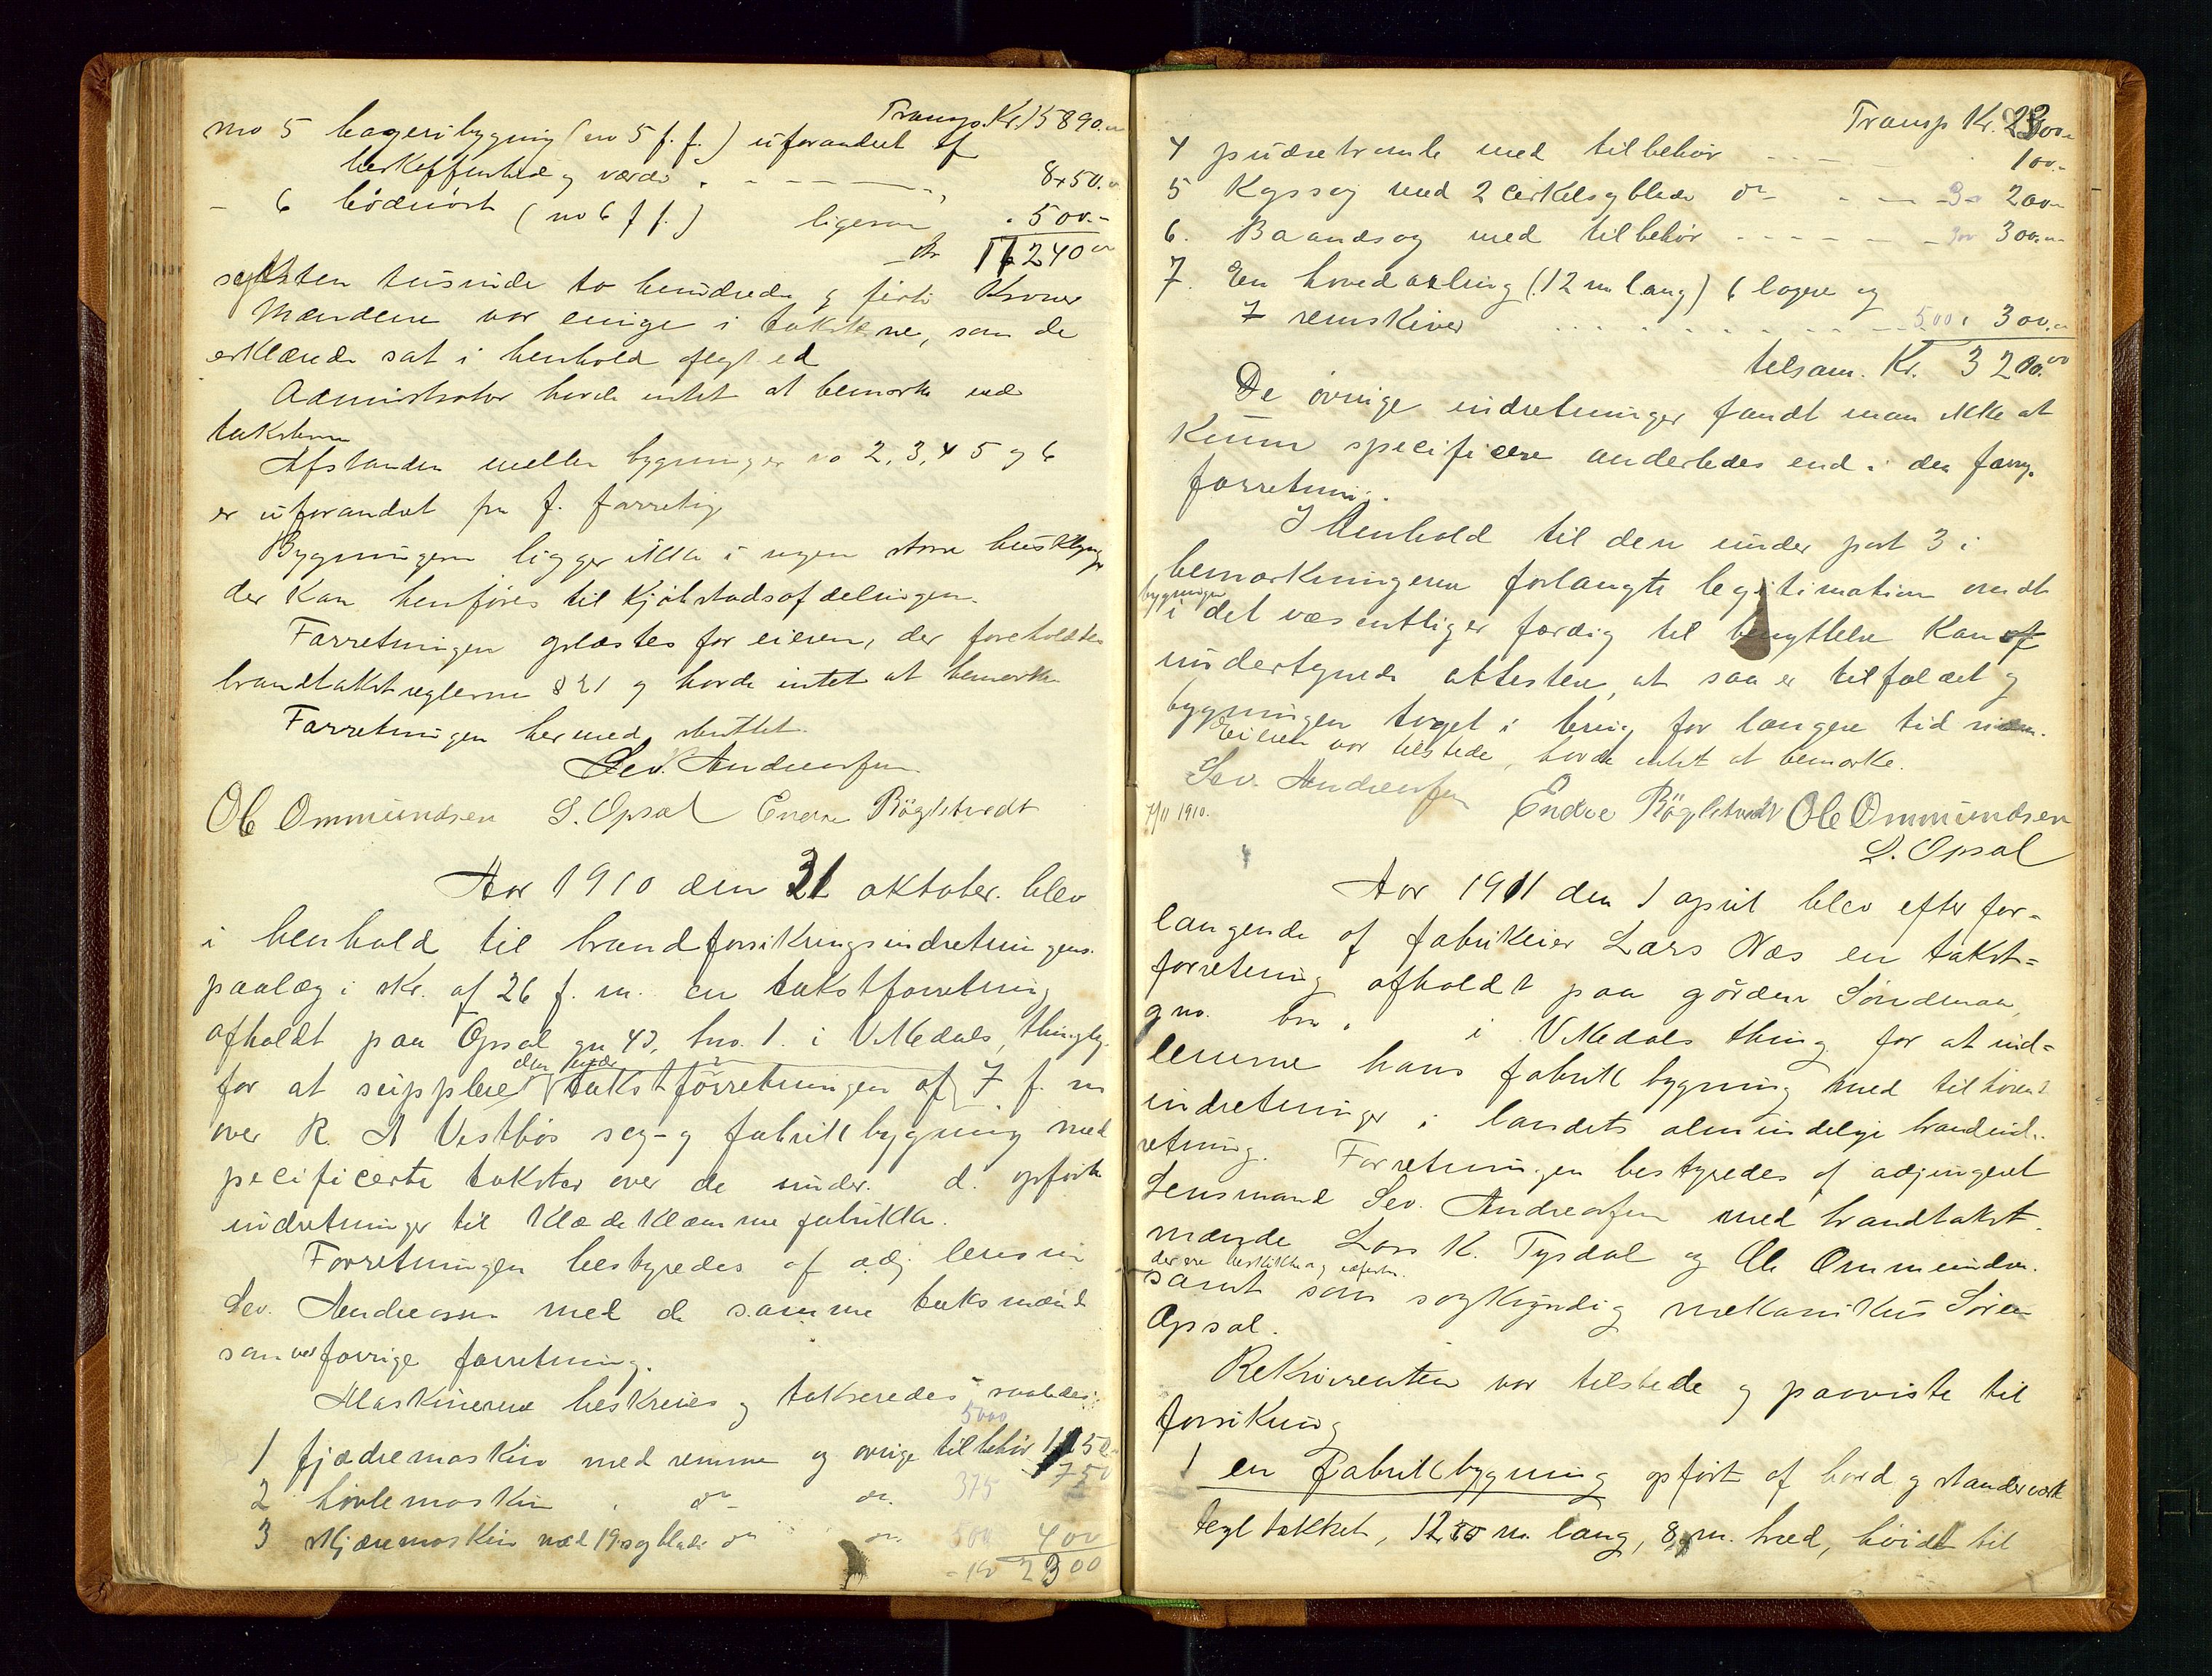 Transp. Kr. 15890.00
no 5 bageribygning (no 5 f. f.) uforandret af
beskaffenhed og værdi 850.00
- 6 bødnöst (no 6 f f.) ligesaa 500.-
Kr 17240 00
sytten tusinde to hundrede og firti Kroner
Mændene var enige i taksterne, som de
erklærede sat i henhold aflagt ed
Administrator havde intet at bemærke ved
taksterne
Afstanden mellem bygninger no 2, 3, 4 5 og 6
er uforandret fra f. forretnig
Bygningerne ligger ikke i nogen større husklynge
der kan henføres til Kjøbstadsafdelingen.
Forretningen oplæstes for eieren, der foreholdtes
brandtakstreglerne § 21 og havde intet at bemærke
Forretningen hermed sluttet.
Sev. Andreassen
Ole Ommundsen S. Opsal Endre Bögletvedt
Aar 1910 den 31 oktober. blev
i henhold til brandforsikringsindretningens
paalæg i skr. af 26 f. m. en takstforretning
afholdt paa Opsal gn 43, bno. 1. i Vikedals thinglag
for at supplere den under takstforretningen af 7 f. m
over R. A Vestbös sag- og fabrikbygning med
specificerte takster over de under d. opførte
indretninger til Klædeklemme fabrikken.
Forretningen bestyredes af adj lensm
Sev. Andreassen med de samme taksmænd
som ved forrige forretning.
Maskinerne beskreves og takseredes saaledes:
5000
1 fjædremaskin med remme og øvrige tilbehör 1150
2 hövlemaskin do do. 375 750
3 Skjæremaskin med 19 sagblade do do. 500 400
2300
Transp Kr. 2300.-
4 pudsetromle med tilbehör 100.-
5 Kapsag med 2 cirkelsagblade do 200.-
6. Baandsag med tilbehör 300.-
7. En hovedaxling (12 m lang) 6 lagere og
7 remskiver 500 300.-
tilsam. Kr. 3200.00
De övrige indretninger fandt man ikke at
kunne specificere anderledes end i den forrige
forretning.
I Henhold til den under post 3 i
bemærkningerne forlangte legitimation om at
bygningen
i det væsentlige er færdig til benyttelse kan
undertegnede attestere, at saa er tilfældet og
bygningen taget i brug for længere tid siden.
Eieren var tilstede, havde intet at bemærke.
Sev. Andreassen Endre Bögletvedt Ole Ommundsen
7/11 1910.
S. Opsal
Aar 1911 den 1 april blev efter for-
langende af fabrikeier Lars Næs en takst-
forretning afholdt paa gården Söndenaa
gno. bno. i Vikedals thing for at ind-
lemme hans fabrikbygning med tilhørende
indretninger i landets almindelige brandind-
retning. Forretningen bestyredes af adjungeret
Lensmand Sev. Andreassen med brandtakst-
mænde Lars K. Tysdal og Ole Ommundsen.
der ere beskikkede og edfæstede.
samt som sagkyndig mekanikus Sören
Opsal.
Rekvirenten var tilstede og paaviste til
forsikring
1 en Fabrikbygning opført af bord og standerværk
tegltækket, 12.50 m. lang, 8 m. bred, höide til